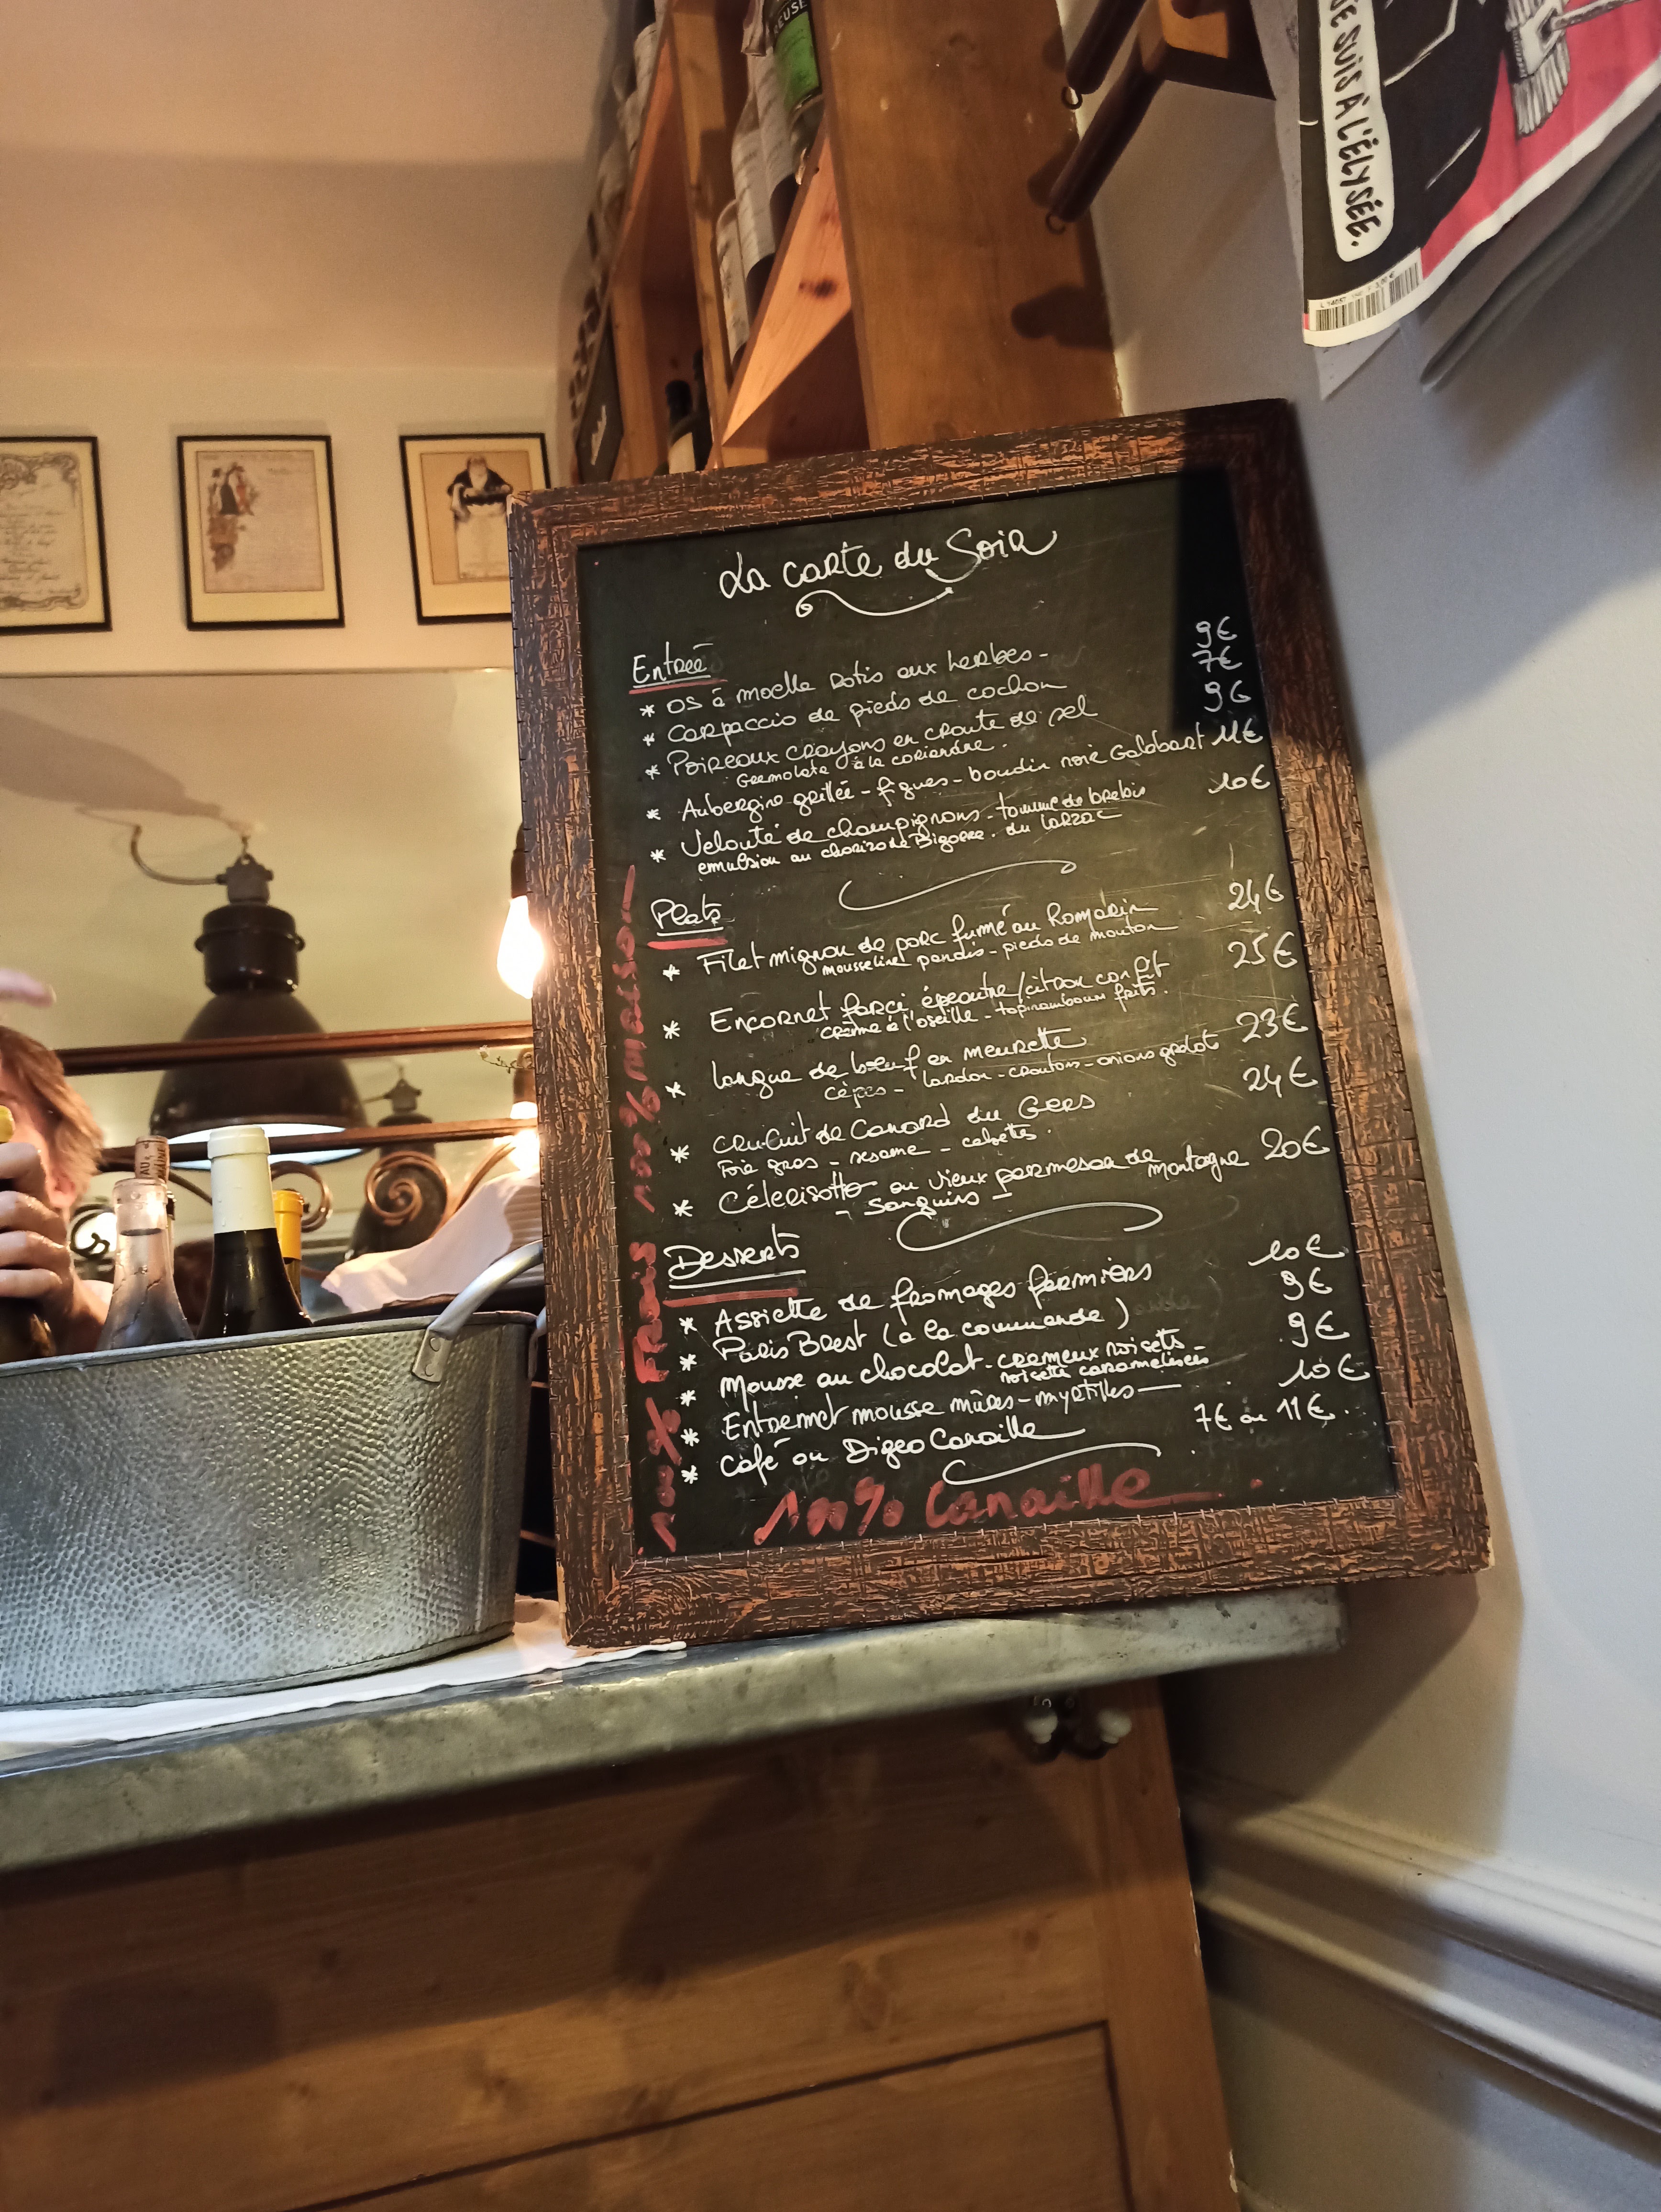 E SUIS À L'ÉLYSÉE.
La carte du Soir
Entreé 9€
* OS à moelle Rotis aux herbes - 7€
* Carpaccio de pieds de cochon 9€
* Poireaux crayons en croute de sel
Gremolata à la coriandre.
* Aubergine grillée - figues - boudin noir Galabart 11€
* Velouté de champignons - tomme de brebis 10€
emulsion au chorizo de Bigorre. du larzac
Plats
* Filet mignon de porc fumé au Romarin 24€
mousseline panais - pieds de mouton
* Encornet farci épeautre/citron confit 25€
crème à l'oseille - topinambours frits.
* langue de bœuf en meurette 23€
cèpes - lardon - croutons - onions grelots
* cru-Cuit de Canard du Gers 24€
Foie gras - sesame -
* Célerisotto au vieux parmesan de montagne 20€
- Sanguins -
Desserts
* Assiette de fromages fermiers 10€
* Paris Brest (a la commande) 9€
* Mousse au chocolat - cremeux noisets - 9€
noisette caramelisées
* Entremet mousse mûres - myrtilles 10€
* Café ou Digeo Canaille 7€ ou 11€.
100% Canaille
100% Frais 100% maison